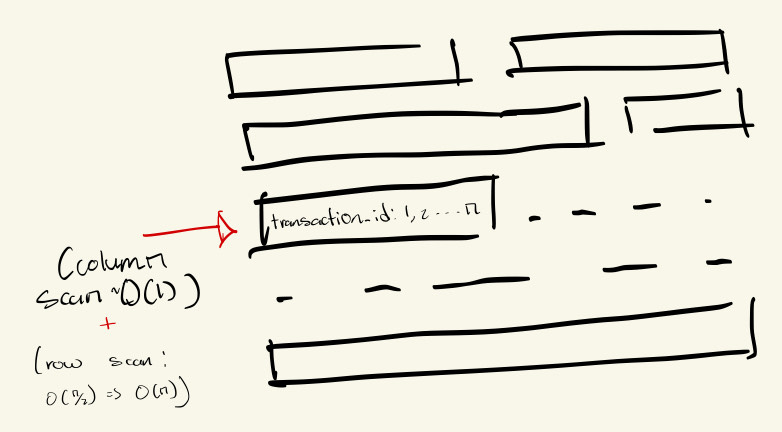 transaction_id: 1, 2 .... n
(column
scan ~O(1))
+
(row scan:
O(n/2) => O(n))